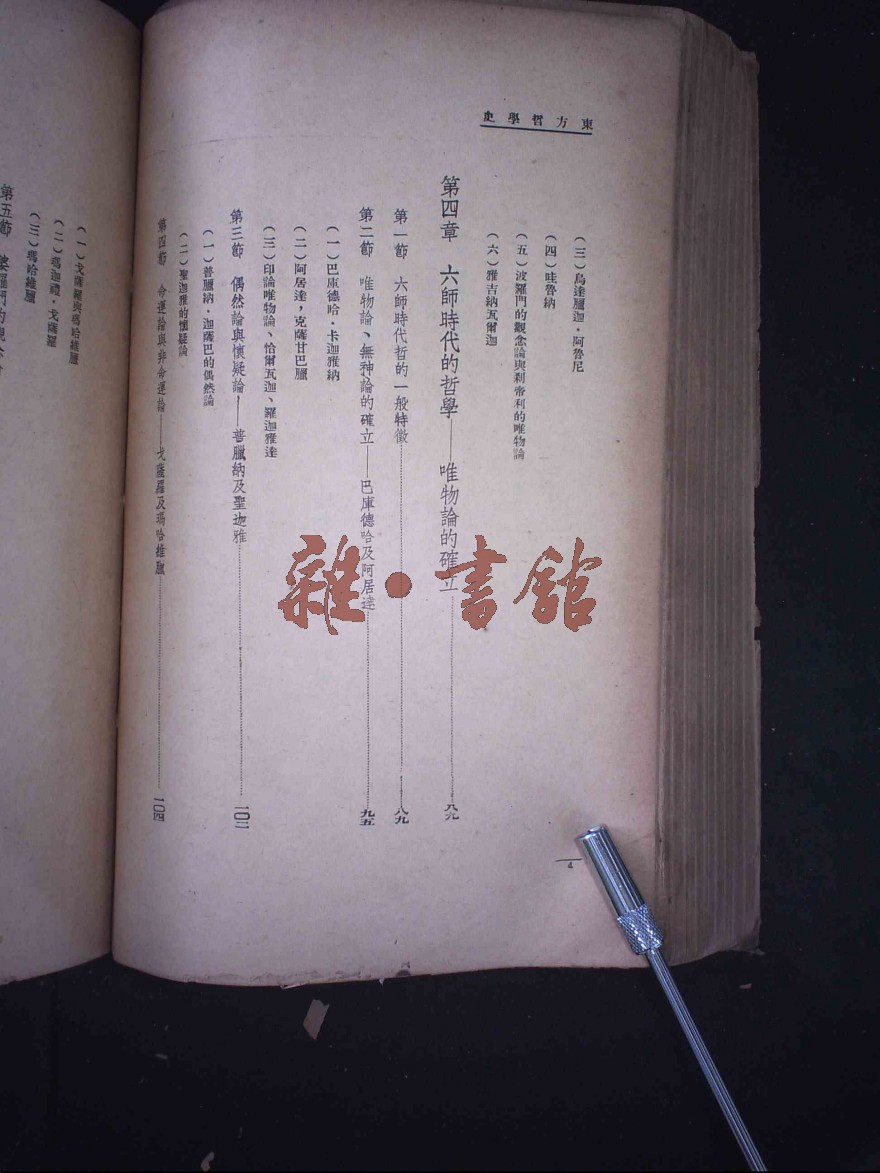 東方哲學史
（三）烏達臘迦・阿魯尼
（四）哇魯納
（五）波羅門的觀念論與刹帝利的唯物論
（六）雅吉納瓦爾迦
第四章 六師時代的哲學——唯物論的確立 八九
第一節 六師時代哲的一般特徵 八九
第二節 唯物論、無神論的確立——巴庫德哈及阿居達 九五
（一）巴庫德哈・卡迦雅納
（二）阿居達，克薩甘巴臘
（三）印論唯物論、恰爾瓦迦、羅迦雅達
第三節 偶然論與懷疑論——普臘納及聖迦雅 一〇二
（一）普臘納・迦薩巴的偶然論
（二）聖迦雅的懷疑論
第四節 命運論與非命運論——戈薩羅及瑪哈維臘 一〇四
4
（一）戈薩羅與瑪哈維臘
（二）瑪迦禮・戈薩羅
（三）瑪哈維臘
第五節 婆羅門的觀念
雜・書館